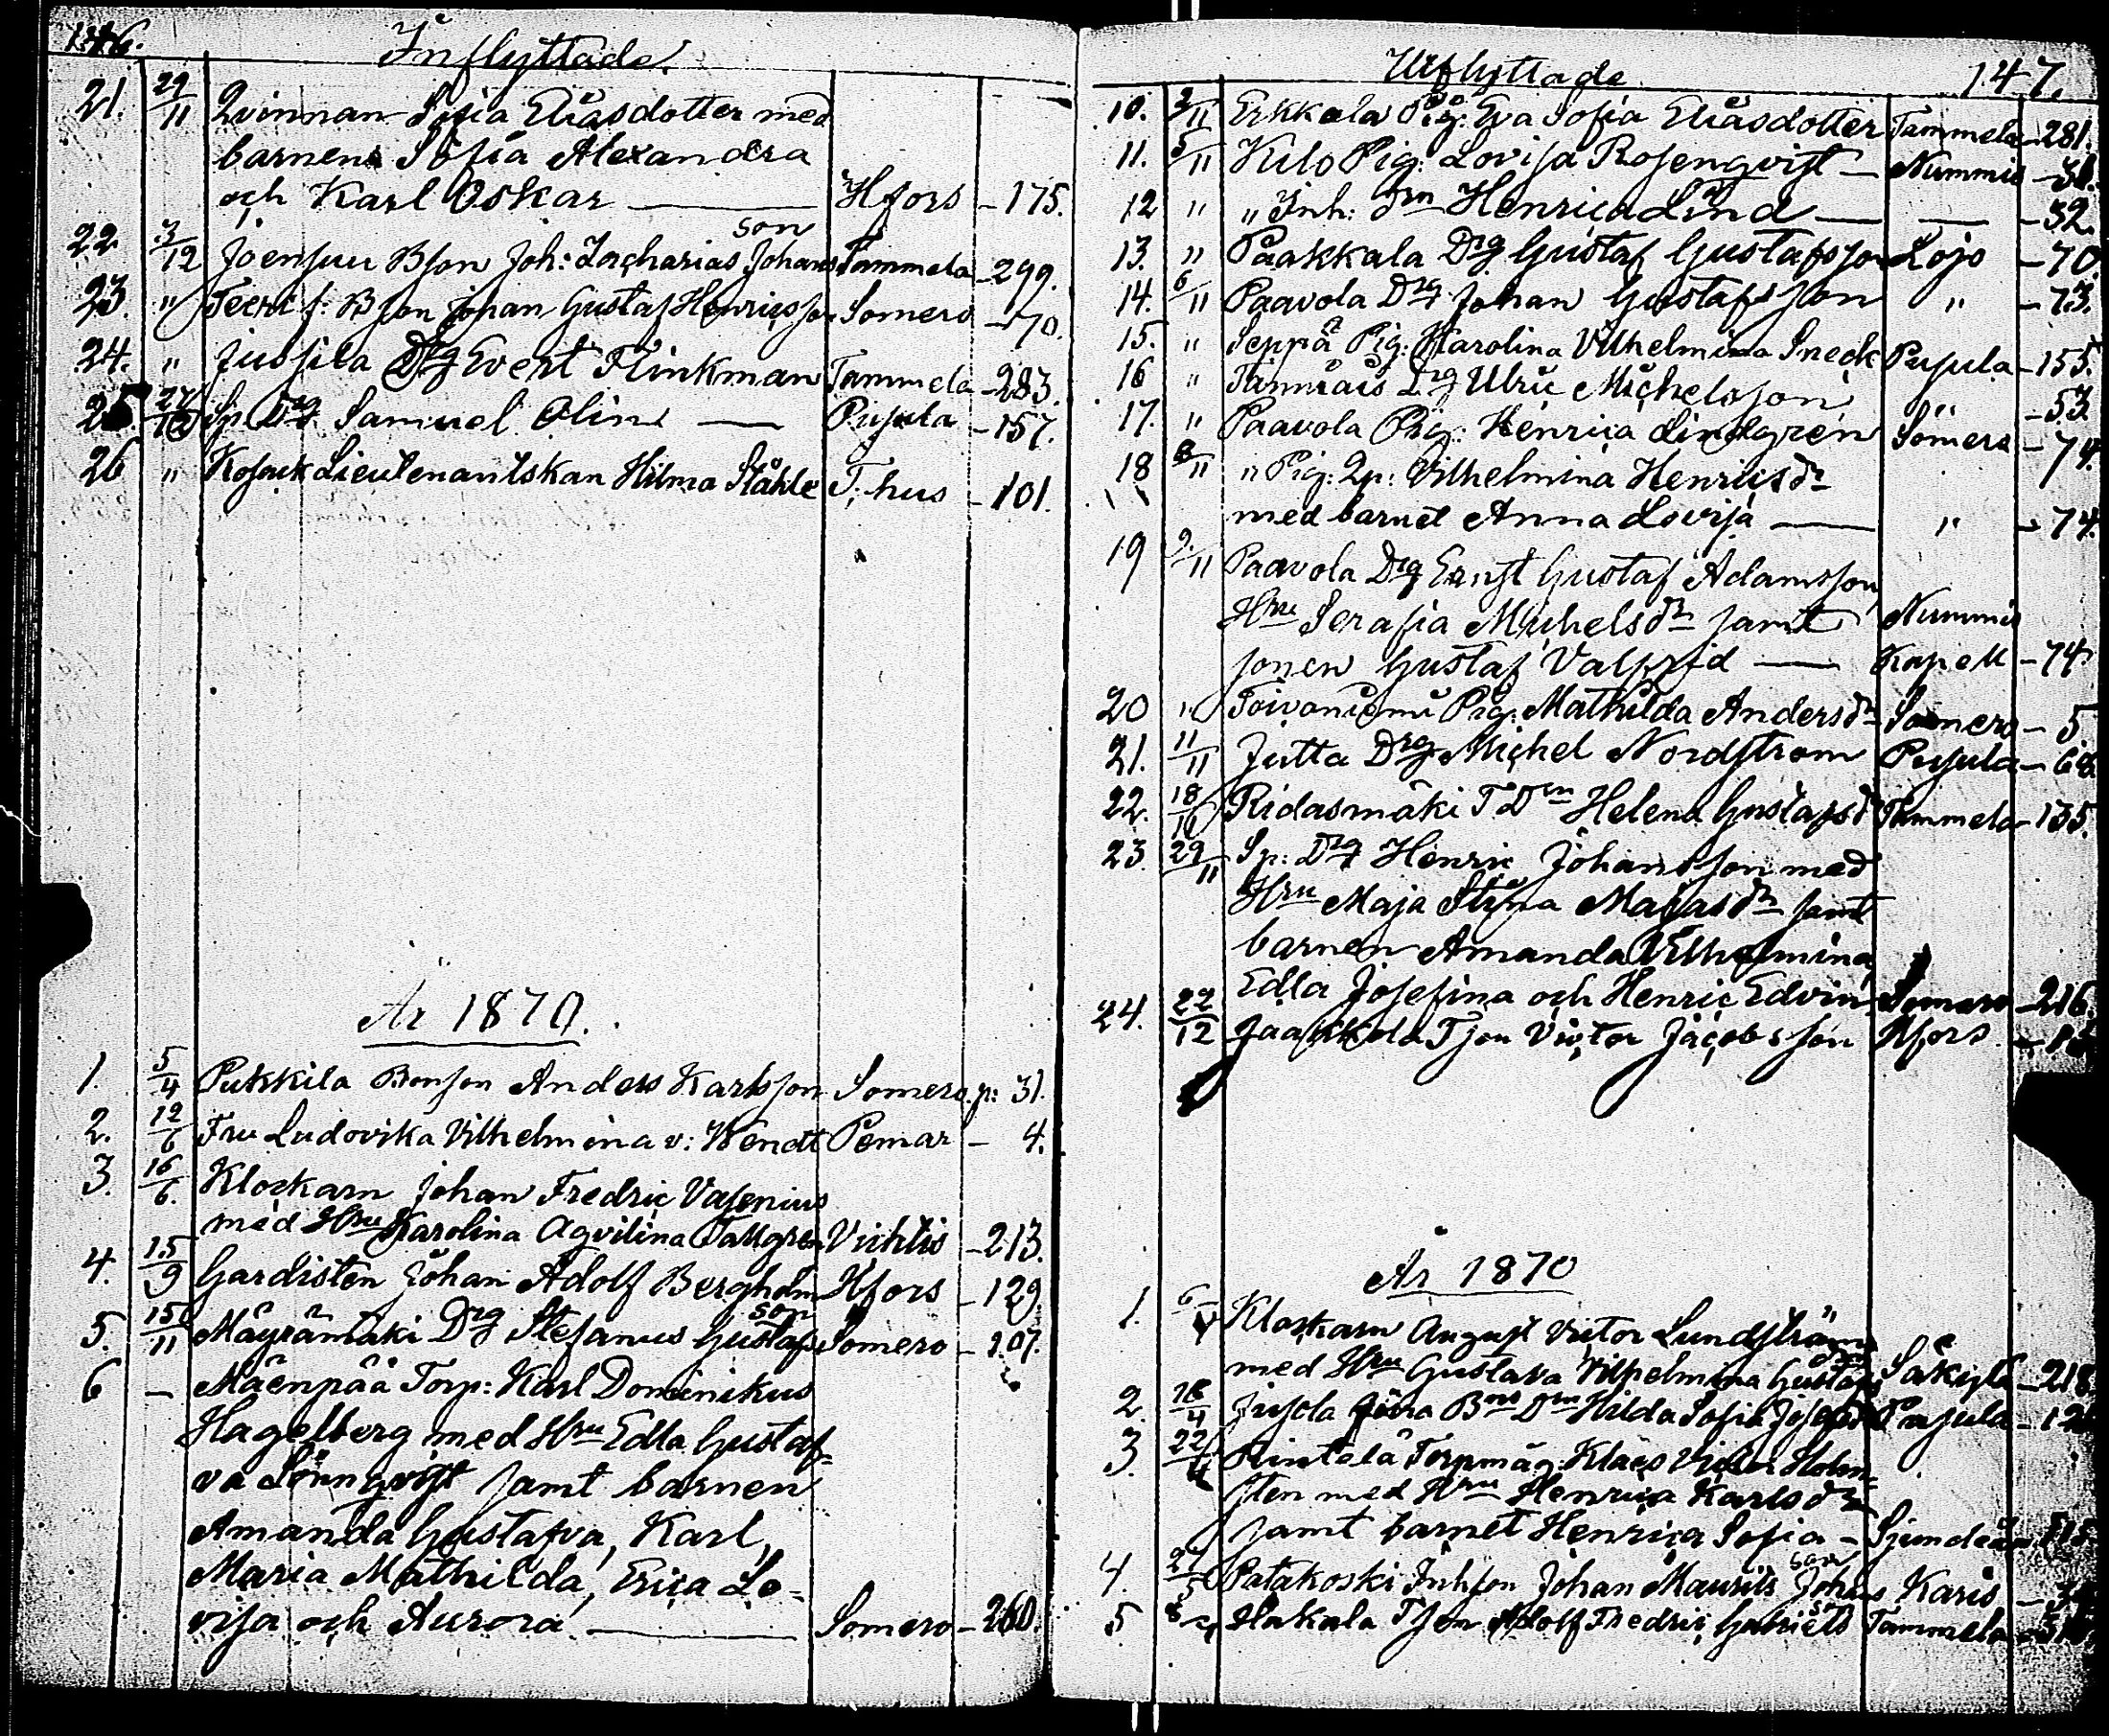 146.
Inflyttade.
21. 29/11 Qvinnan Sofia Eliasdotter med
barnen Sofia Alexandra
och Karl Oskar — Hfors - 175.
son
22 3/12 Joensuu Bson Joh: Zacharias Johans Tammela - 299.
23. " Teeri f: Bson Johan Gustaf Henricsson Somero - 70.
24. " Jussila Drg Evert Flinkman Tammela - 283.
25. Sp. Drg Samuel Olin — Pusula - 157.
26 " Lieutenantskan Hilma Ståhle T:hus - 101.
År 1870.
1. 5/4 Pukkila Bonson Anders Karlsson Somero p: 31.
2. 12/6 Fru Ludovika Vilhelmina v: Wendt Pemar - 4.
3. 16/6. Klockarn Johan Fredric Vasenius
med Hru Karolina Aqvilina Tallgren Vichtis - 213.
4. 15/9 Gardisten Johan Adolf Bergholm Hfors - 129.
son
5. 15/11 Mäyrämäki Drg Stefanus Gustafs Somero - 207.
6 — Mäenpää Torp: Karl Dominikus
Hagelberg med Hru Edla Gustaf-
va Lönnqvist samt barnen
Amanda Gustafva, Karl,
Maria Mathilda, Erica Lo-
visa och Aurora — Somero - 260.
Utflyttade
147.
10. 2/11 Erkkala Pig: Eva Sofia Eliasdotter Tammela - 281.
11. 5/11 Kilo Pig: Lovisa Rosenqvist — Nummis
12 " " Inh: Drn Henrica Lind — — - 32.
13. " Paakkala Drg Gustaf Gustafsson Lojo - 70.
14. 6/11 Paavola Drg Johan Gustafsson " - 73.
15. " Seppä Pig: Karolina Vilhelmina Sneck Pusula - 155.
16 " Drg Ulric Michelsson " - 53.
17. " Paavola Pig: Henrica Lindgren Somero - 74.
18 8/11 " Pig: Qp: Vilhelmina Henricsdr
med barnet Anna Lovisa — " - 74.
19 9/11 Paavola Drg Ernst Gustaf Adamsson,
Hru Serafia Michelsdr samt Nummis
sonen Gustaf Valfrid — Kapell - 74.
20 " Toivaniemi Pig: Mathilda Andersdr Somero - 5
21. 11/11 Jutta Drg Michel Nordström Pusula - 68.
22. 18/11 Ridasmäki T Drn Helena Gustafsdr Tammela - 135.
23 29/11 Sp: Drg Henric Johansson med
Hru Maja Stina Matsdr samt
barnen Amanda Vilhelmina,
Edla Josefina och Henric Edvin Somero - 216.
24. 22/12 Jaakkola Tson Victor Jacobsson Hfors
År 1870
1. Klockarn August Victor Lundström
med Hru Gustava Vilhelmina Gustafs Säkylä - 218
2. Hilda Sofia Pusula
3. Rintala Torpmåg Klaes Victor Holm-
sten med Hru Henrica Karlsdr
samt barnet Henrica Sofia - Sjundeå
son
4. Patakoski Inhson Johan Maurits Johans Karis
5 Hakala Tson Adolf Fredric Gabriels Tammela